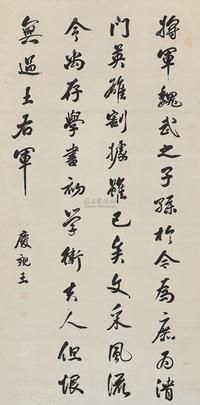 將軍魏武之子孫於今為庶為清
門英雄割據雖已矣文采風流
今尚存學書初學衛夫人但恨
無過王右軍